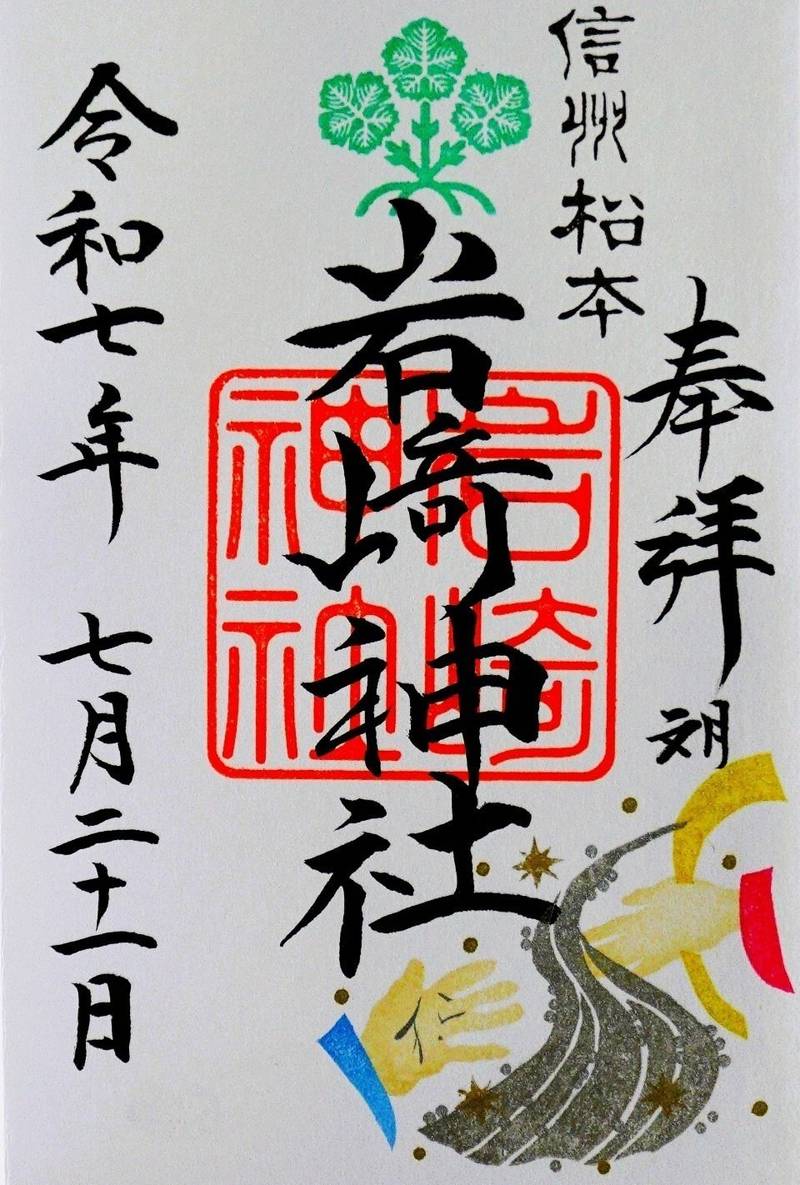 信州松本
奉拝
文月
岩﨑神社
岩崎
神社
仁
令和七年 七月二十一日